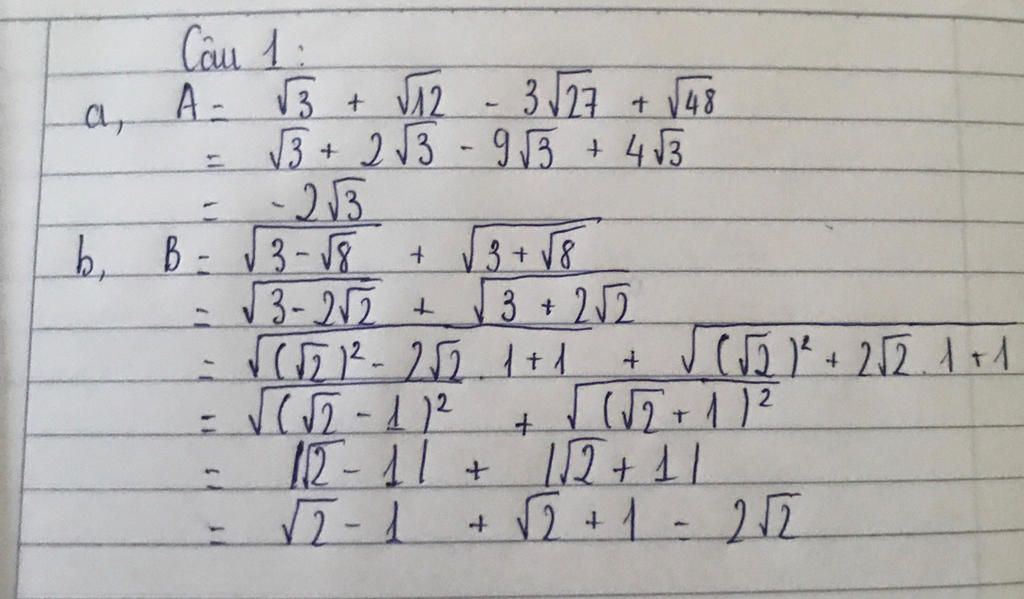 Câu 1:
a, A = √3 + √12 - 3√27 + √48
= √3 + 2√3 - 9√3 + 4√3
= -2√3
b, B = √(3-√8) + √(3+√8)
= √(3-2√2) + √(3+2√2)
= √((√2)² - 2√2.1+1) + √((√2)² + 2√2.1+1)
= √((√2-1)²) + √((√2+1)²)
= |√2-1| + |√2+1|
= √2-1 + √2+1 = 2√2